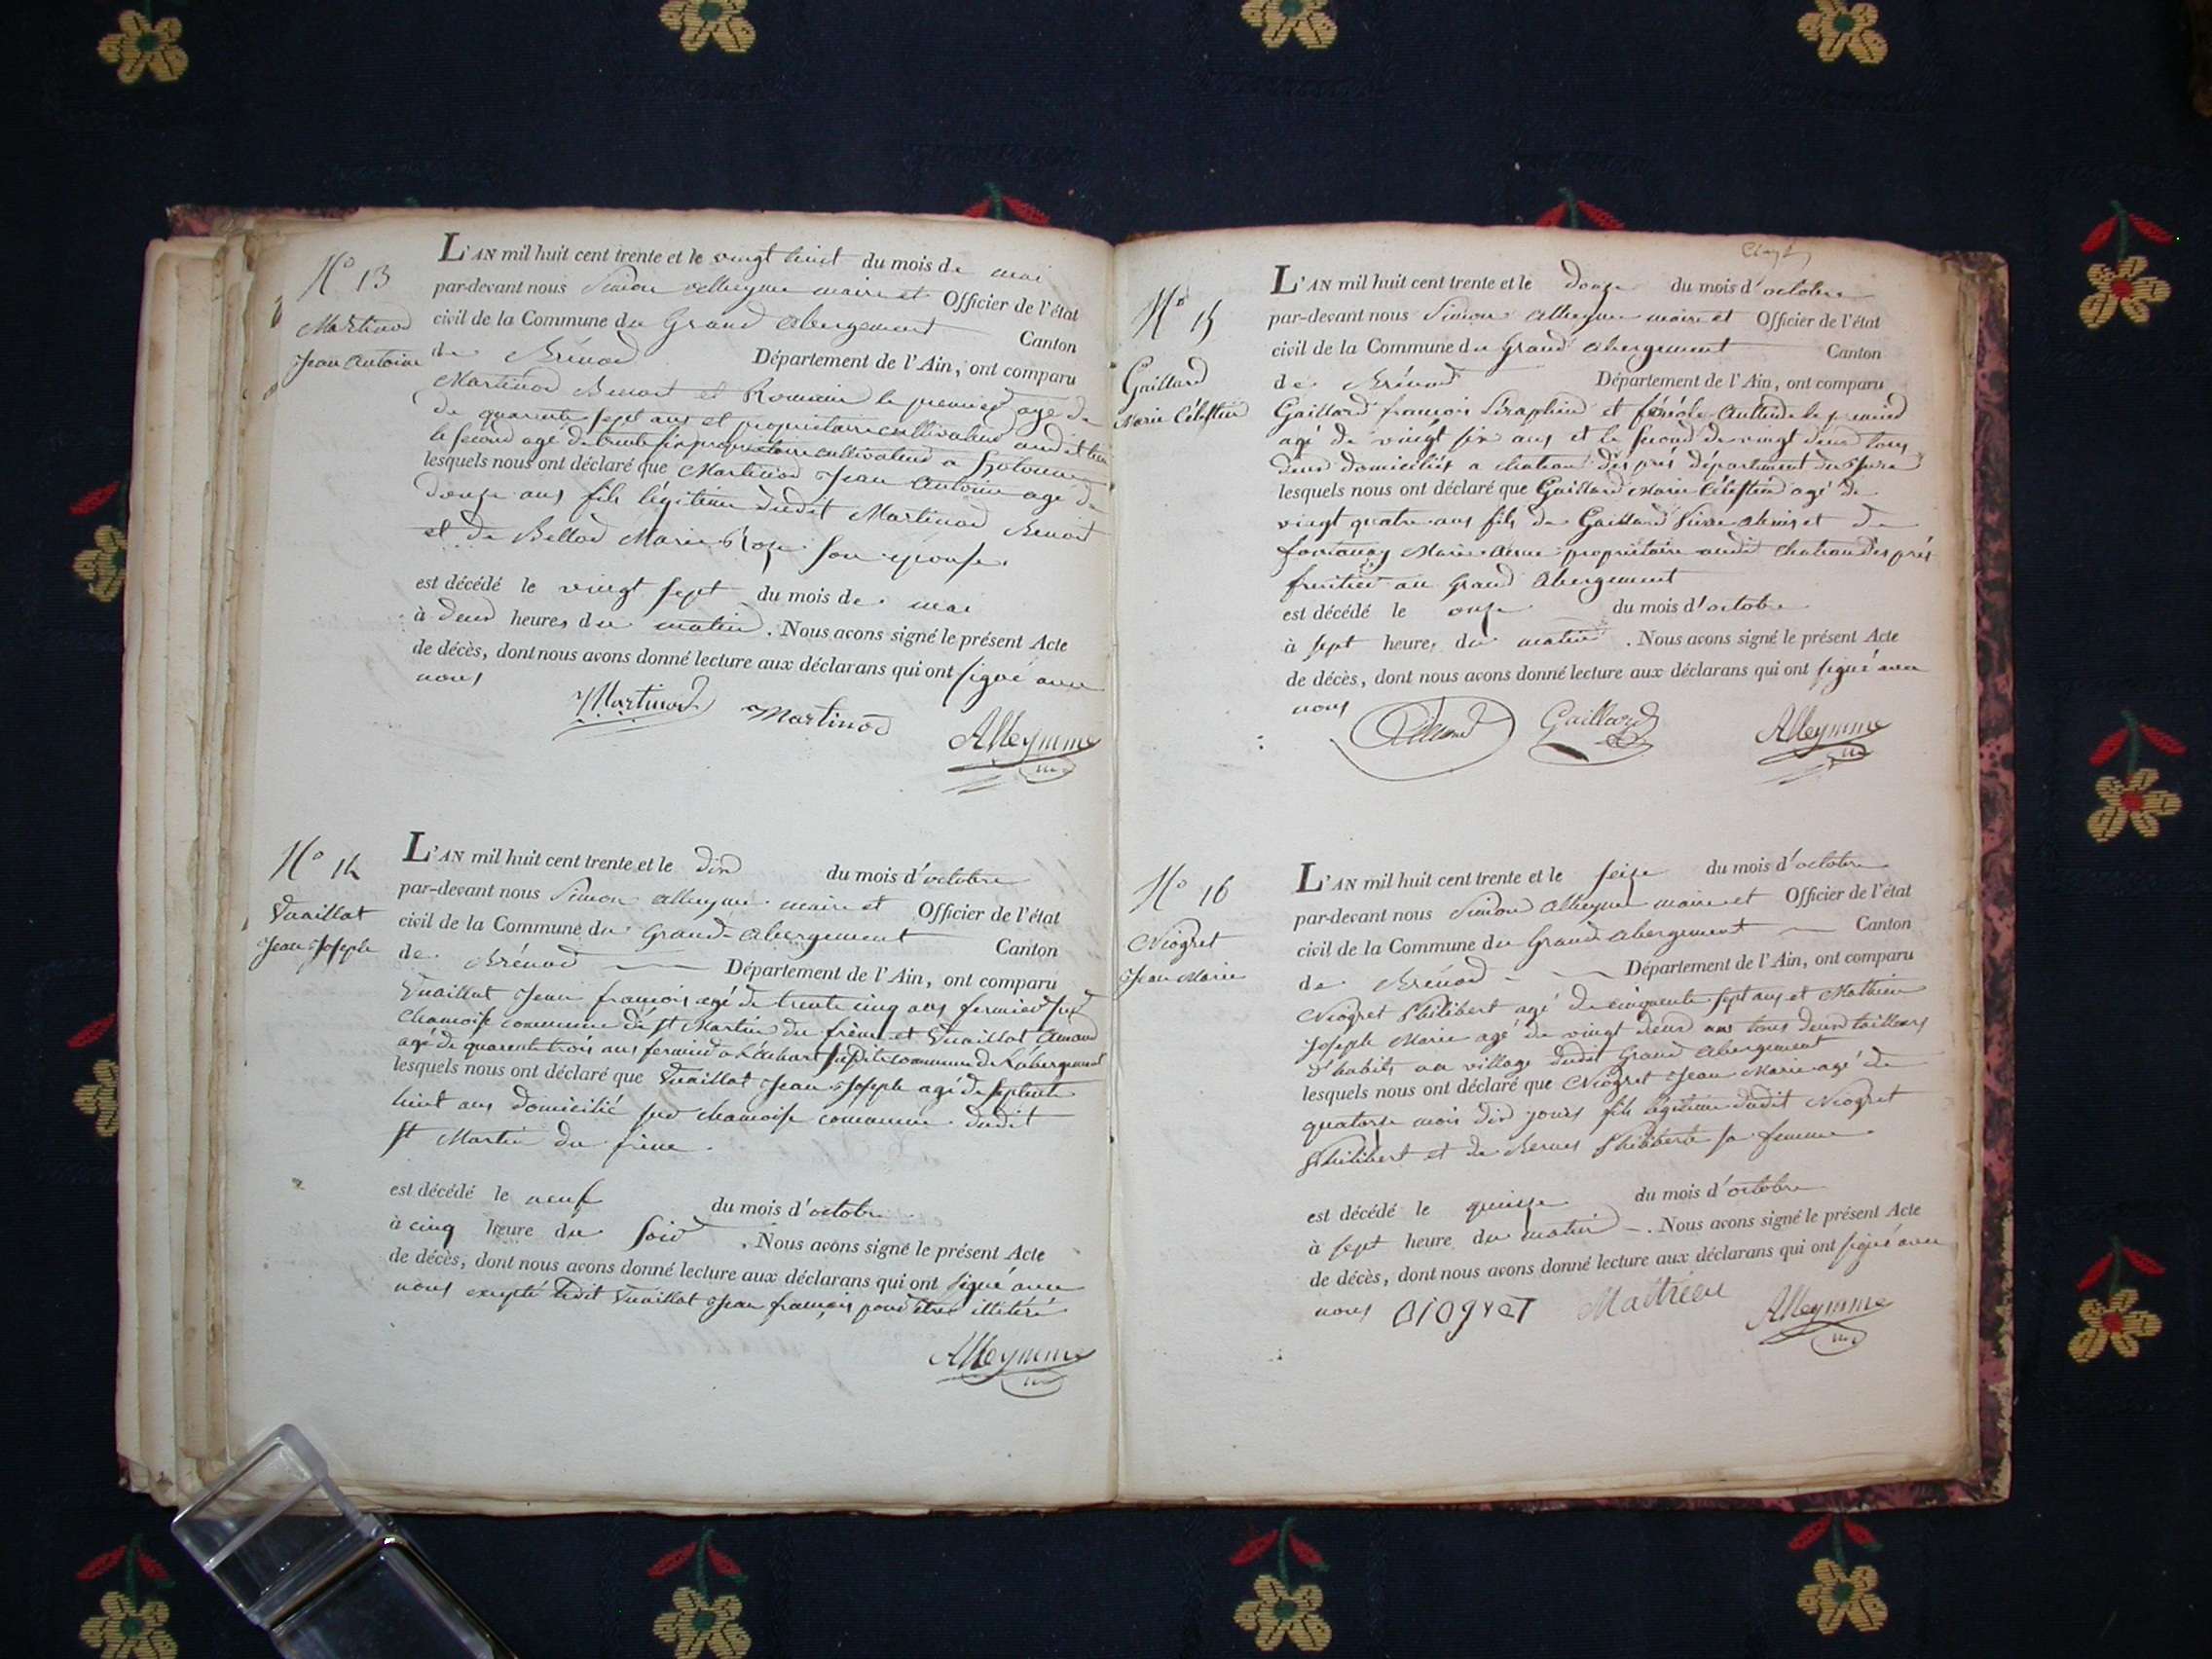 N° 13
Martinod
Jean Antoine
L'AN mil huit cent trente et le vingt huit du mois de mai
par-devant nous Simon Alleyme maire et Officier de l'état
civil de la Commune du Grand abergement Canton
de Brénod Département de l'Ain, ont comparu
Martinod Benoit et Romain le premier agé de
de quarente sept ans et propriétaire cultivateur audit lieu
le second agé de trente six propriétaire cultivateur a hotonne
lesquels nous ont déclaré que Martinod Jean Antoine agé de
douze ans fils légitime dudit Martinod Benoit
et de Bellod Marie Roze son epouse.
est décédé le vingt sept du mois de mai
à deux heures du matin. Nous avons signé le présent Acte
de décès, dont nous avons donné lecture aux déclarans qui ont signé avec
nous
Martinod Martinod
Alleymme
N° 14
Vuaillat
Jean Joseph
L'AN mil huit cent trente et le dix du mois d'octobre
par-devant nous Simon Alleyme maire et Officier de l'état
civil de la Commune du Grand-abergement Canton
de Brénod Département de l'Ain, ont comparu
Vuaillat Jean françois agé de trente cinq ans fermier sur
Chamoise commune de St Martin du frêne et Vuaillat Amand
agé de quarente trois ans fermier a susdite commune de L'abergement
lesquels nous ont déclaré que Vuaillat Jean Joseph agé de septente
huit ans domicilié sur chamoise commune dudit
St Martin du frêne.
est décédé le neuf du mois d'octobre
à cinq heure du soir. Nous avons signé le présent Acte
de décès, dont nous avons donné lecture aux déclarans qui ont signé avec
nous excepté ledit Vuaillat Jean françois pour être illitéré
Alleymme
N° 15
Gaillard
Marie Célestin
L'AN mil huit cent trente et le douze du mois d'octobre
par-devant nous Simon Alleyme maire et Officier de l'état
civil de la Commune du Grand abergement Canton
de Brénod Département de l'Ain, ont comparu
Gaillard françois Séraphin et le premier
agé de vingt six ans et le second de vingt deux tous
deux domiciliés a chateau des prés département du Jura
lesquels nous ont déclaré que Gaillard Marie Célestin agé de
vingt quatre ans fils de Gaillard Pierre Alexis et de
Marie propriétaire audit Chateau des prés
fruitier au Grand Abergement
est décédé le onze du mois d'octobre
à sept heure, du matin. Nous avons signé le présent Acte
de décès, dont nous avons donné lecture aux déclarans qui ont signé avec
nous
Gaillard Alleymme
N° 16
Niogret
Jean Marie
L'AN mil huit cent trente et le seize du mois d'octobre
par-devant nous Simon Alleyme maire et Officier de l'état
civil de la Commune du Grand Abergement Canton
de Brénod Département de l'Ain, ont comparu
Niogret Philibert agé de cinquente sept ans et Mathieu
Joseph Marie agé de vingt deux ans tous deux tailleurs
d'habits au village dudit Grand Abergement
lesquels nous ont déclaré que Niogret Jean Marie agé de
quatorse mois dix jours fils légitime dudit Niogret
Philibert et de Berne Philiberte sa femme.
est décédé le quinze du mois d'octobre
à sept heure du matin. Nous avons signé le présent Acte
de décès, dont nous avons donné lecture aux déclarans qui ont signé avec
nous niogret Mathieu Alleymme